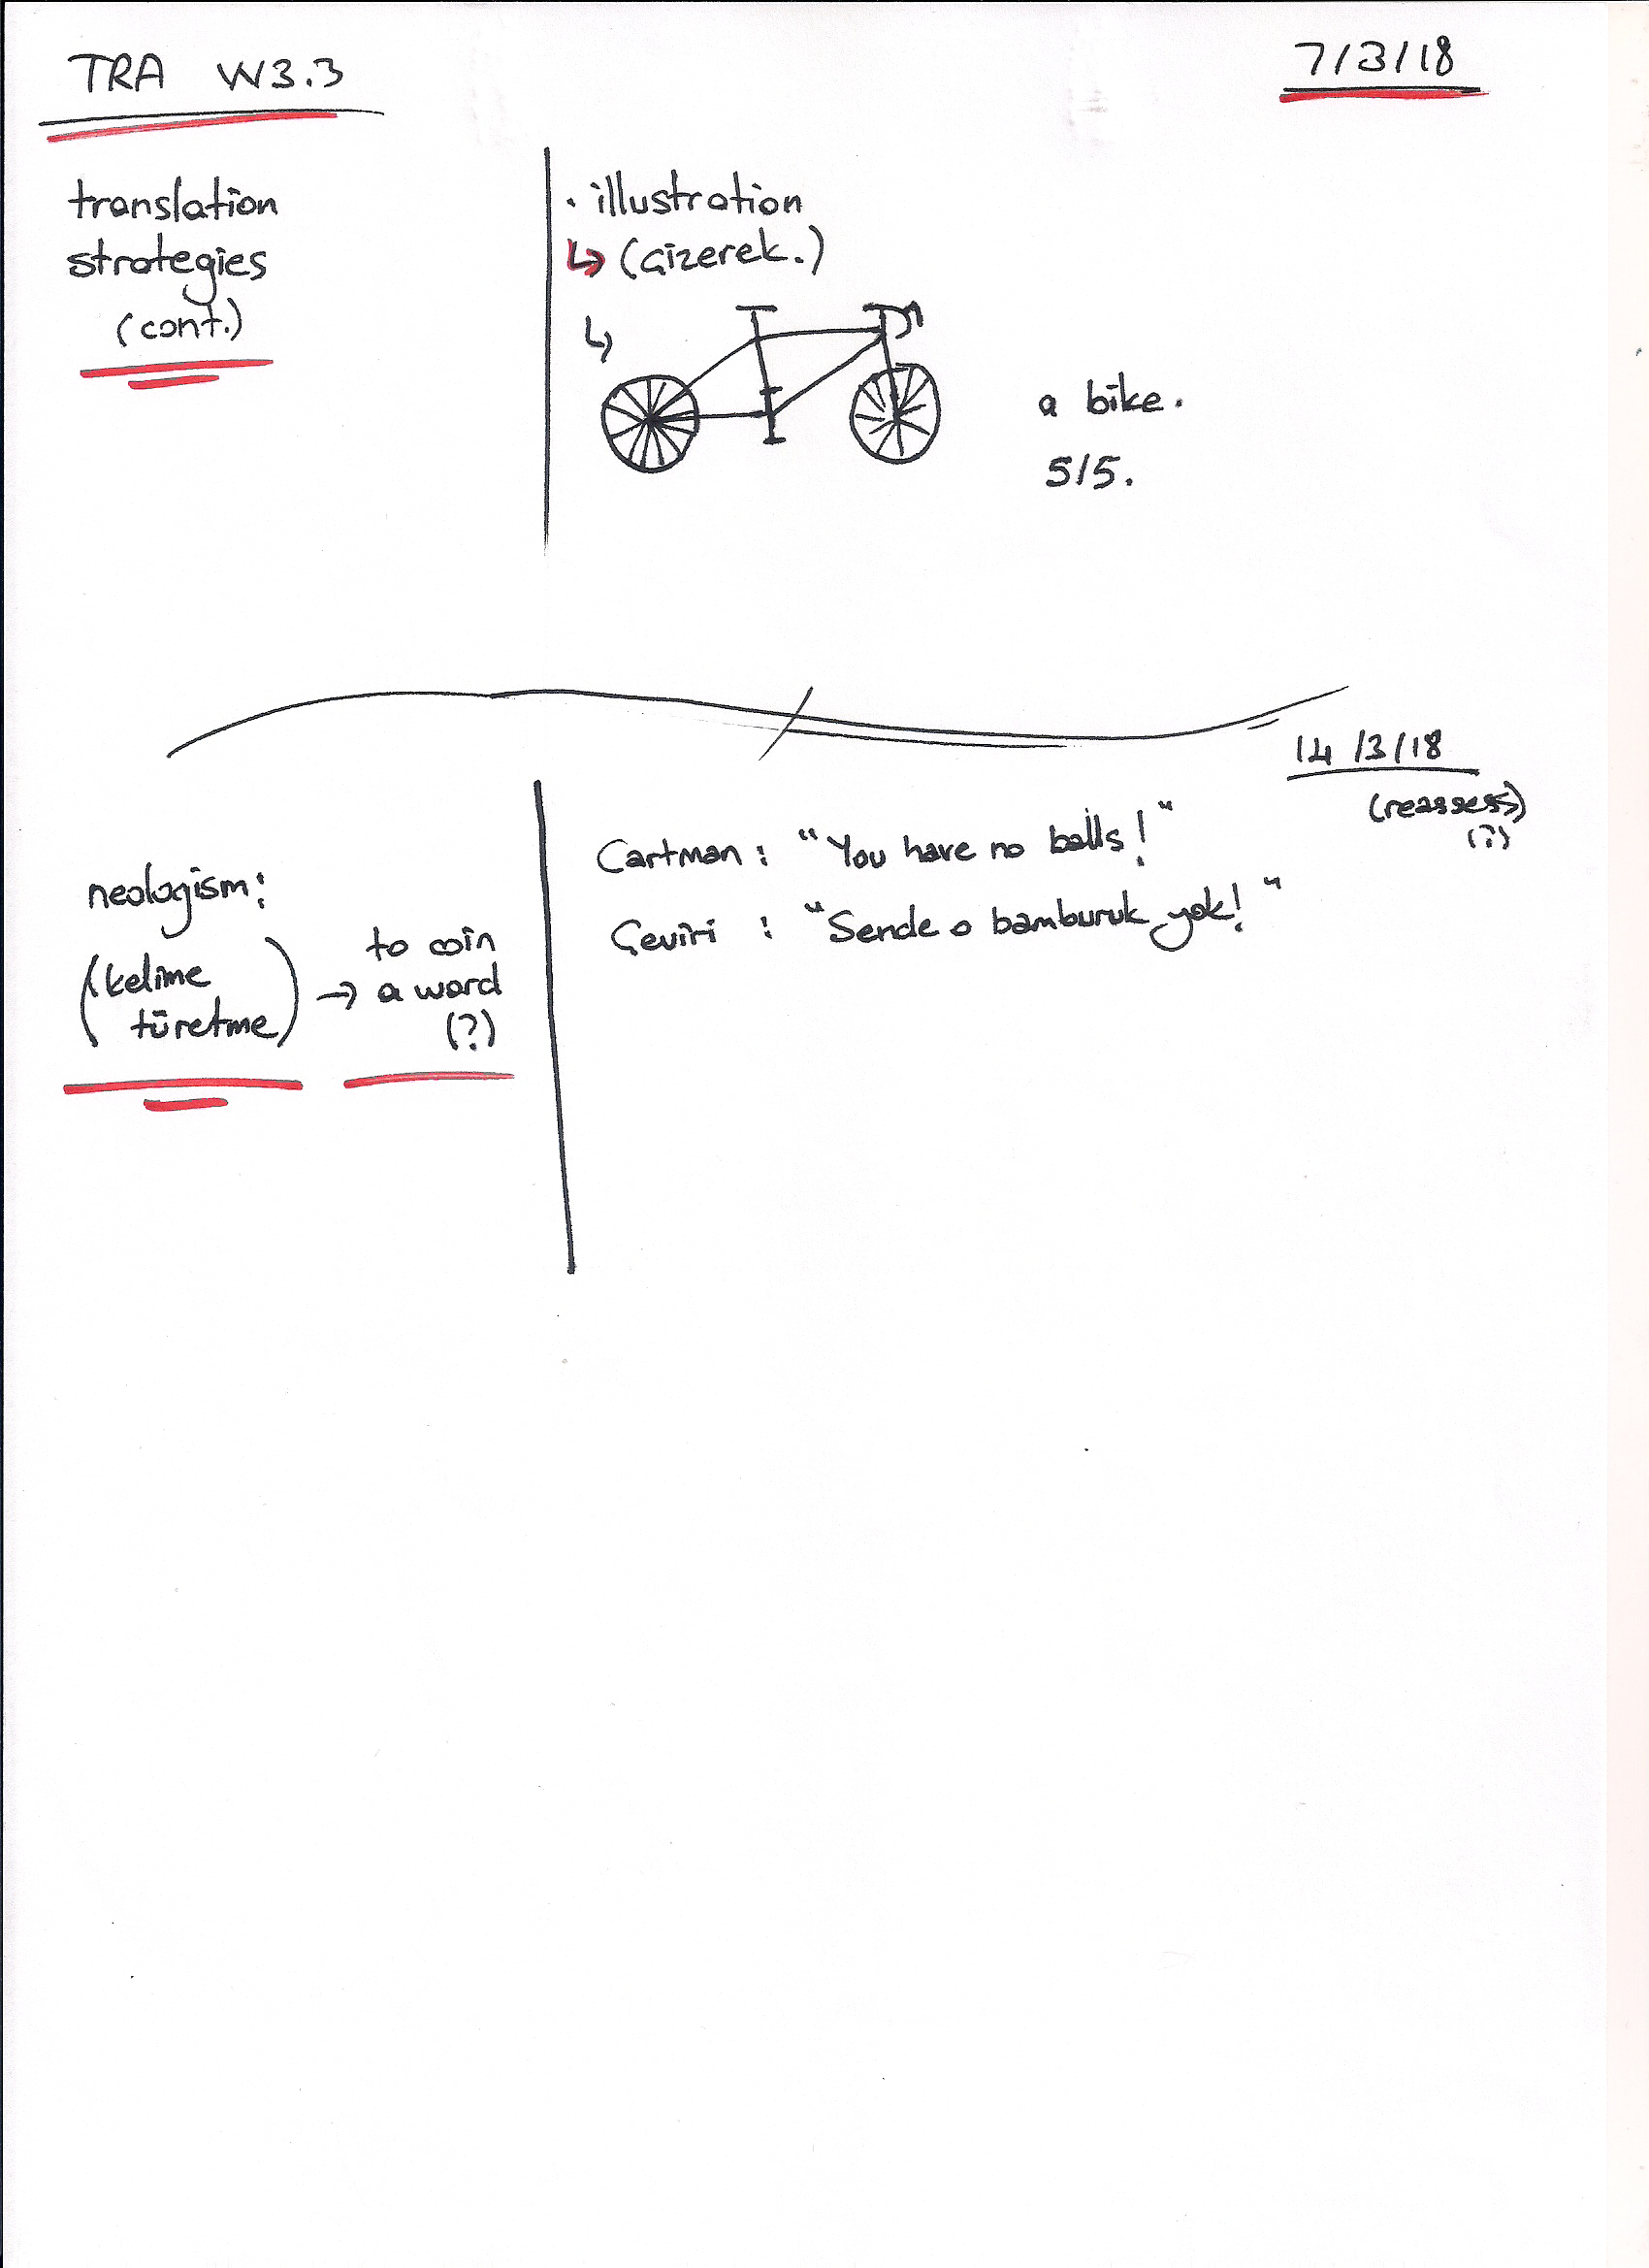 TRA W3.3
7/3/18
translation
strategies
(cont.)
· illustration
↳ (Çizerek.)
↳
a bike.
5/5.
14/3/18
(reassess)
(?)
neologism:
(kelime
türetme)
→ to coin
a word
(?)
Cartman : "You have no balls!"
Çeviri : "Sende o bamburuk yok!"